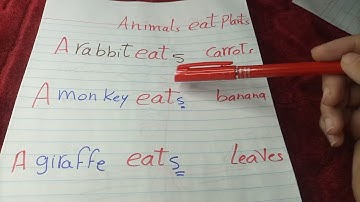 Animals eat Plants
A rabbit eats carrots
A monkey eats banana
A giraffe eats leaves